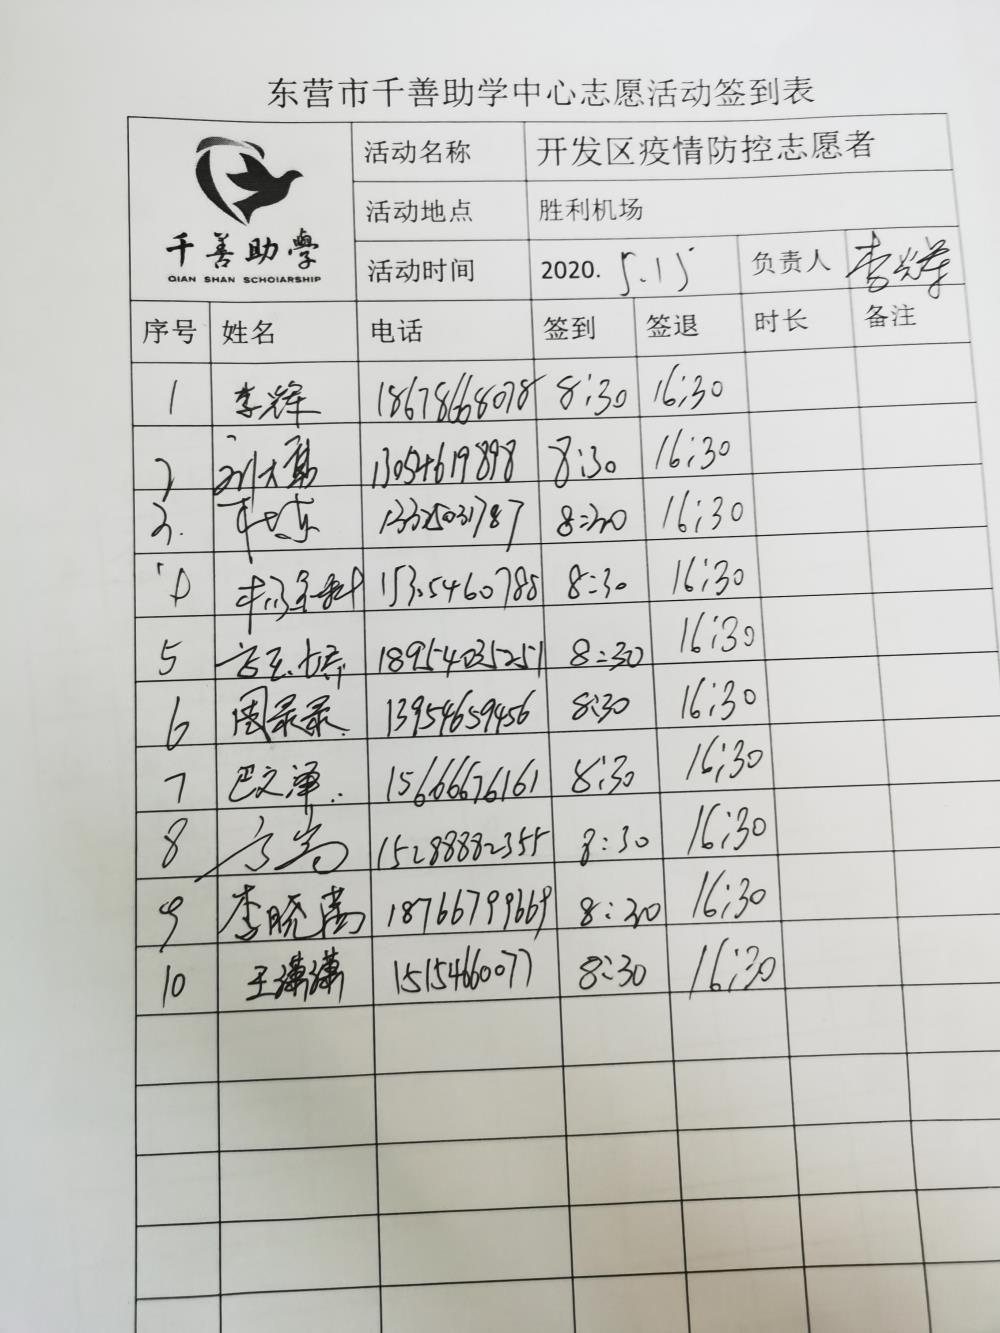 东营市千善助学中心志愿活动签到表
千善助學
QIAN SHAN SCHOLARSHIP
活动名称 开发区疫情防控志愿者
活动地点 胜利机场
活动时间 2020. 5.15 负责人
序号 姓名 电话 签到 签退 时长 备注
1 李辉 18678668078 8:30 16:30
2 刘大勇 13054619898 8:30 16:30
3. 13325031787 8:30 16:30
4 15305460788 8:30 16:30
5 18954035251 8:30 16:30
6 周录录 13954659456 8:30 16:30
7 巴文泽 15666676161 8:30 16:30
8 方嵩 15288882355 8:30 16:30
9 李晓 18766799669 8:30 16:30
10 王潇潇 15154660077 8:30 16:30